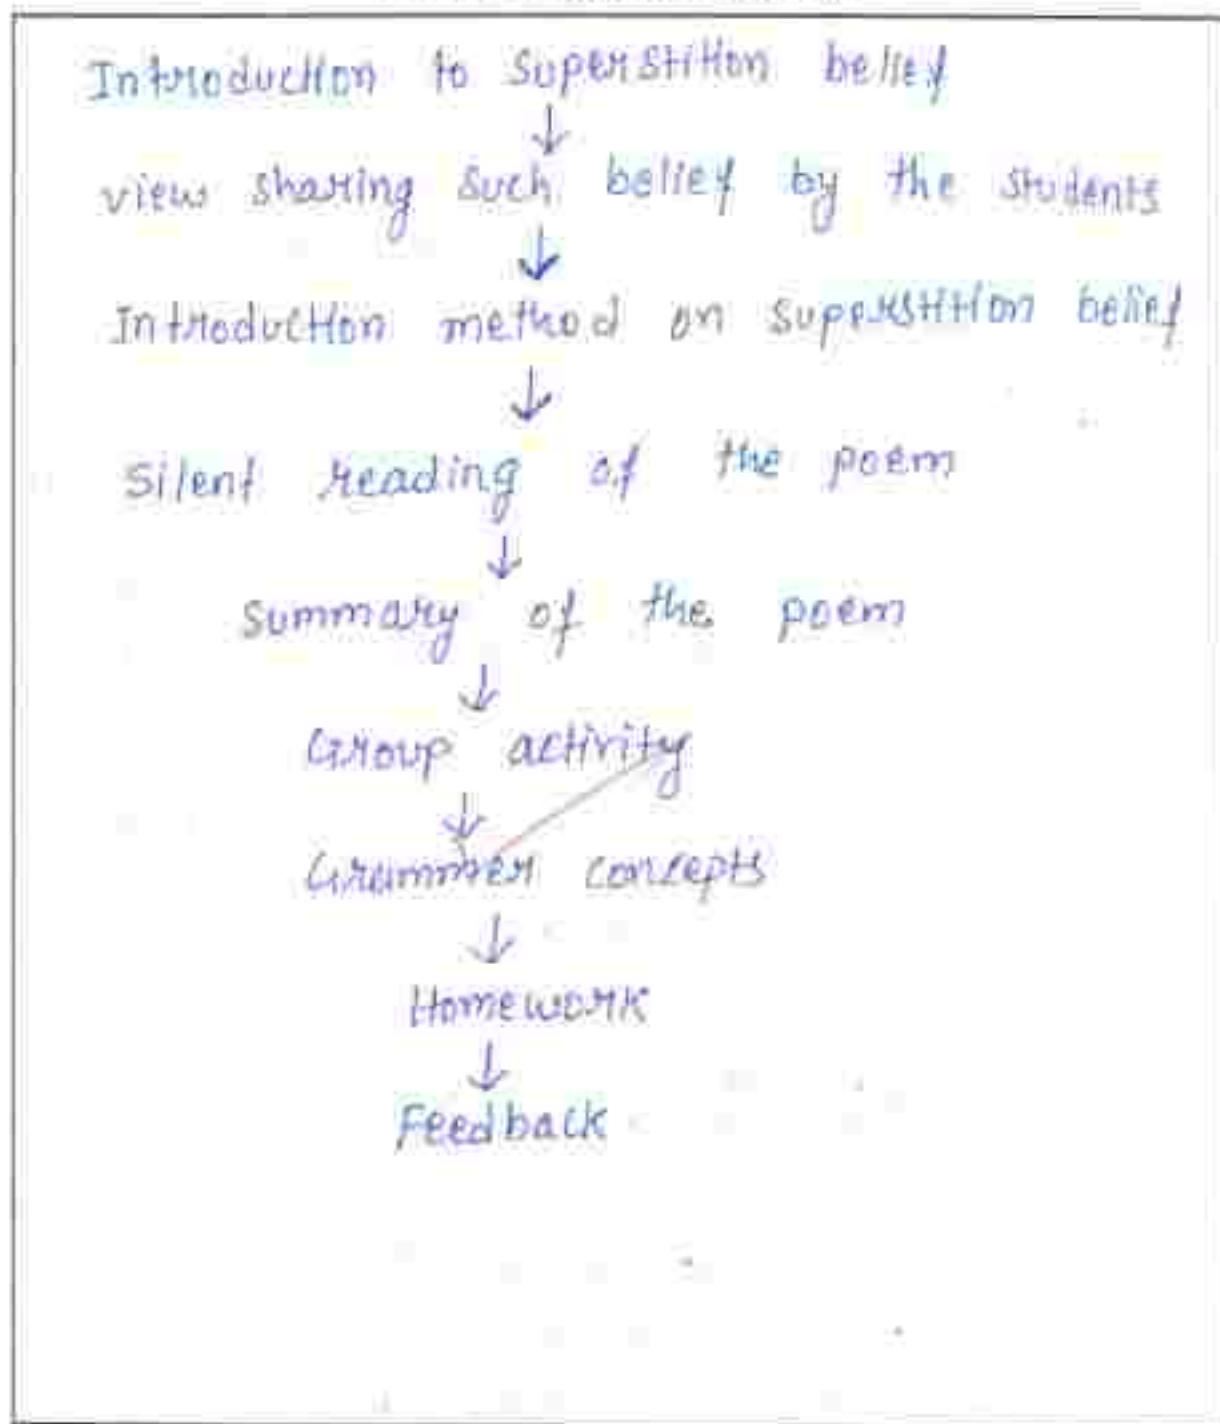 Introduction to superstition belief
↓
view sharing such belief by the students
↓
Introduction method on supperstition belief
↓
Silent reading of the poem
↓
Summary of the poem
↓
Group activity
↓
Grammer concepts
↓
Homework
↓
Feedback